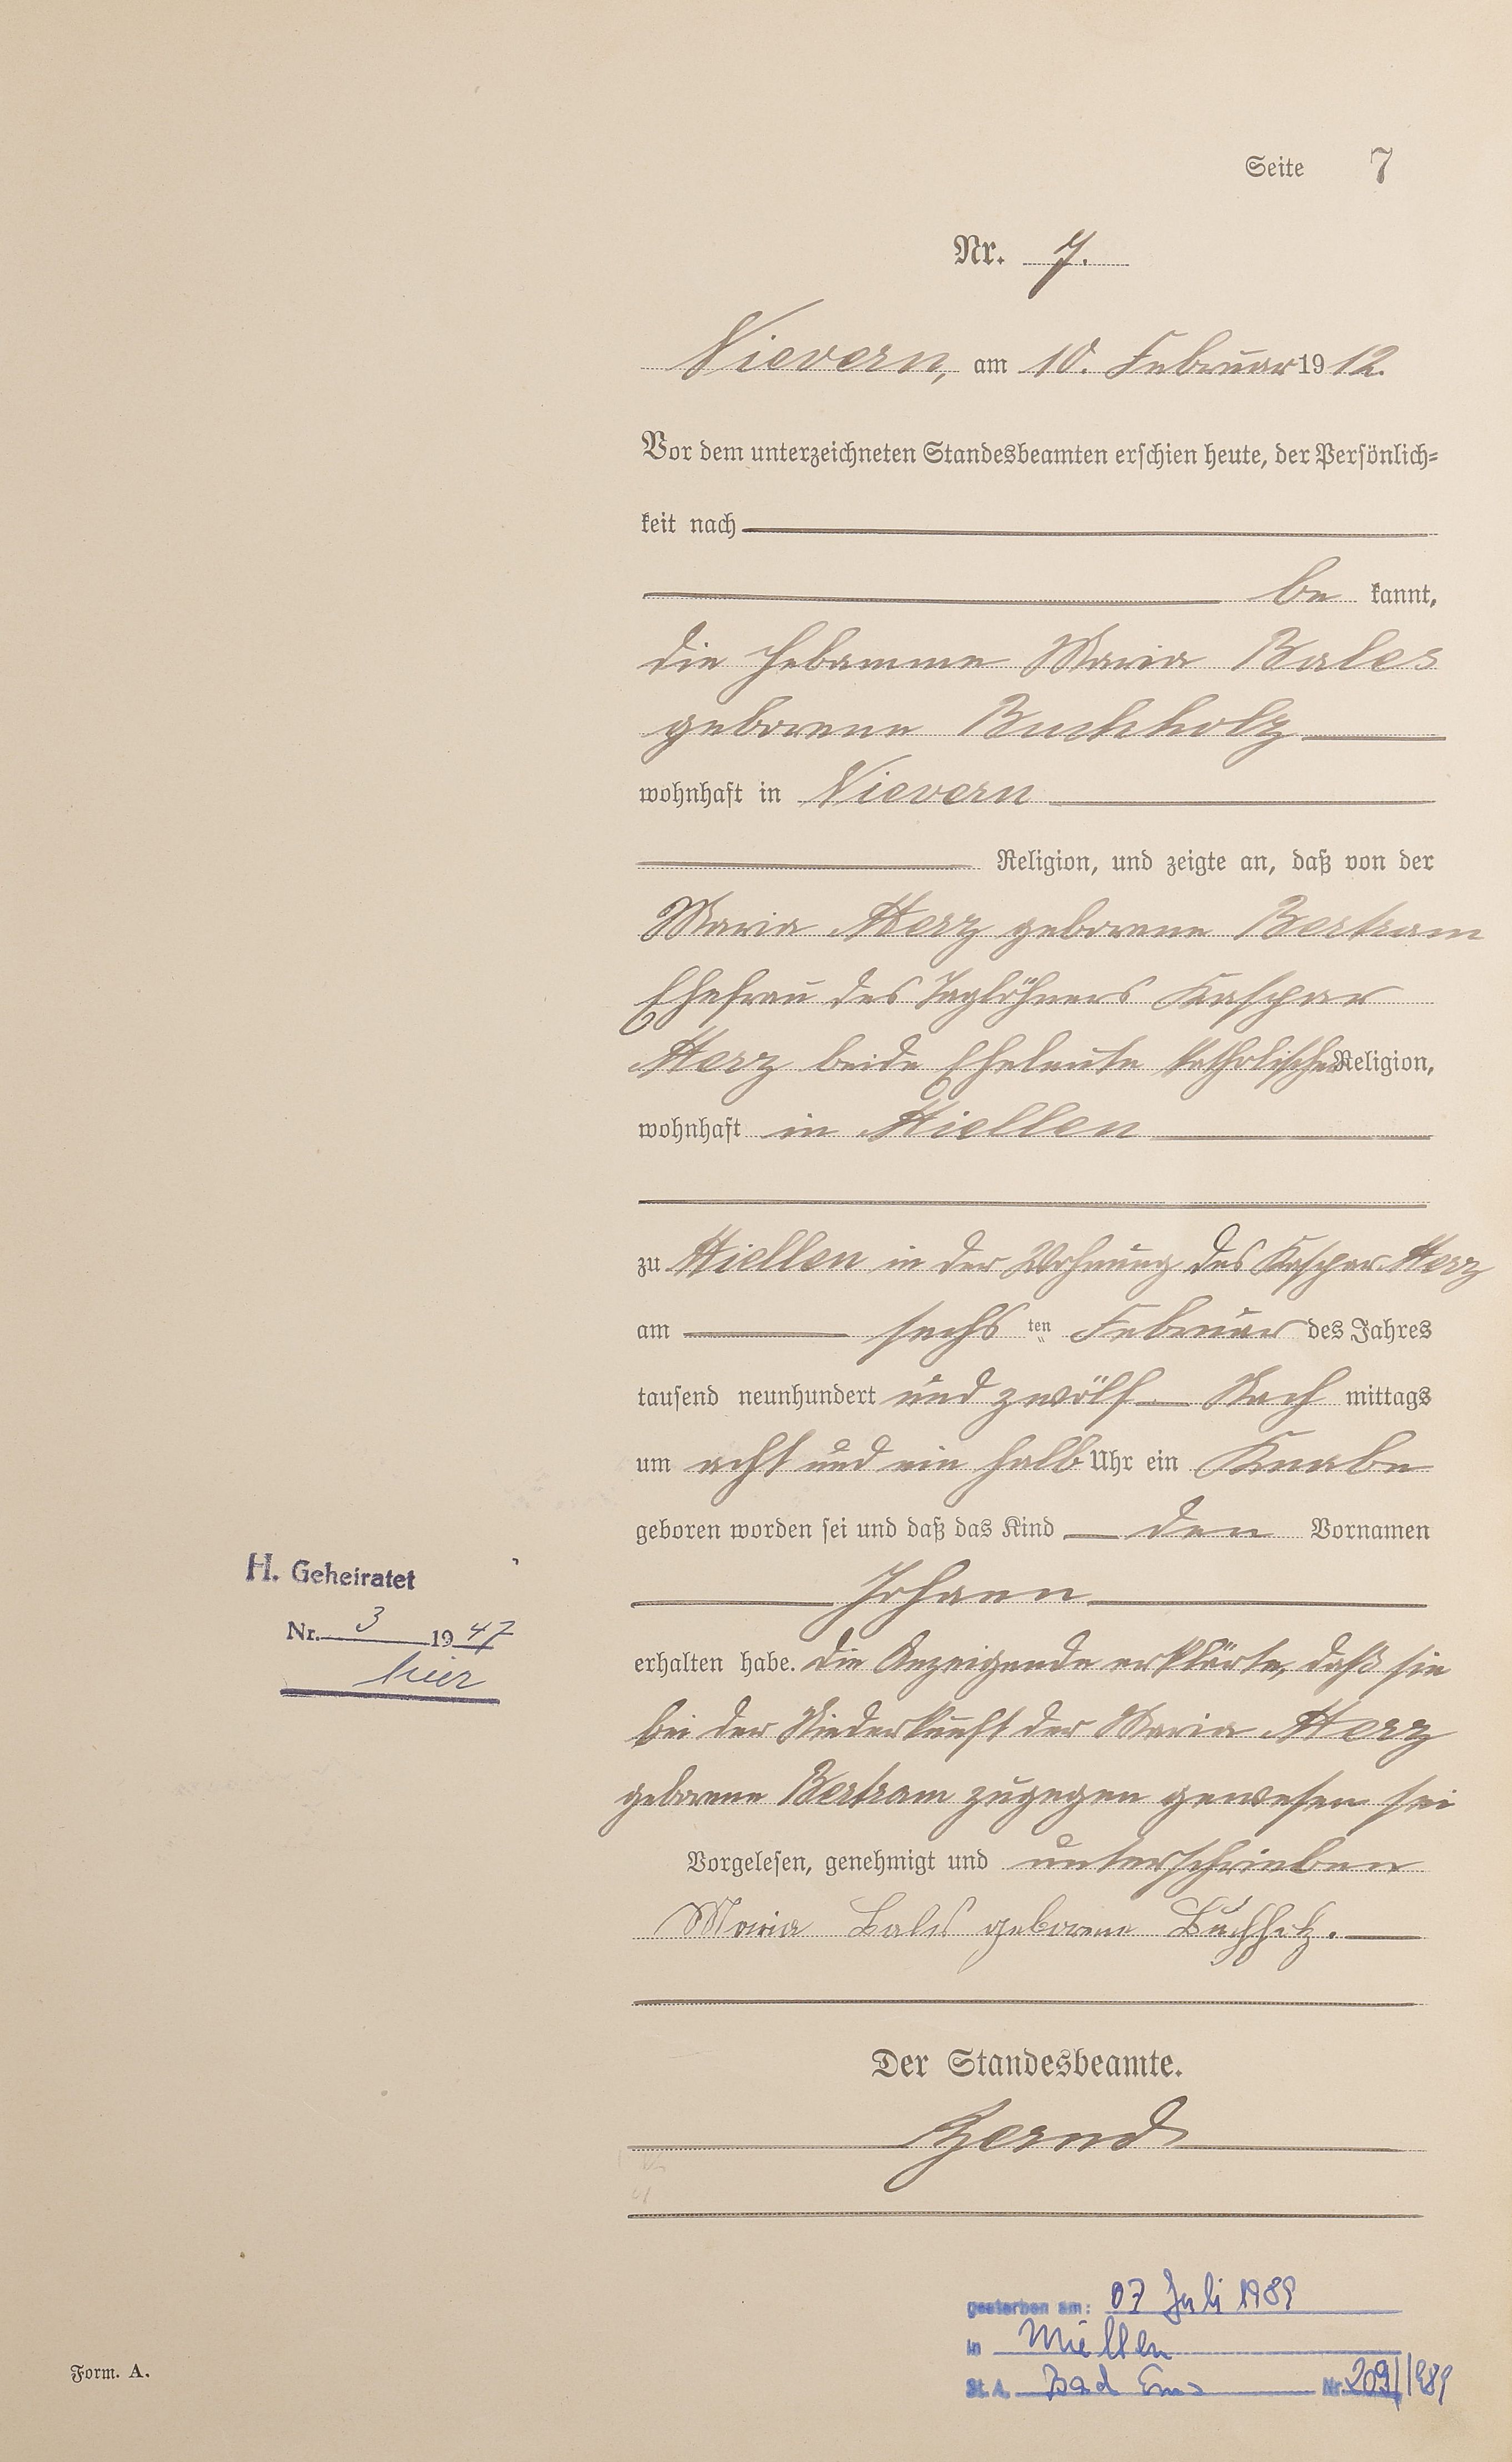 Seite 7
Nr. 7.
Nievern, am 10. Februar 1912.
Vor dem unterzeichneten Standesbeamten erschien heute, der Persönlich-
keit nach
be kannt,
die Hebamme Maria Bales
geborene Buchholz
wohnhaft in Nievern
Religion, und zeigte an, daß von der
Maria Merz geborene Bertram
Ehefrau des Taglöhners Kaspar
Merz beide Eheleute katholischer Religion,
wohnhaft in Miellen
zu Miellen in der Wohnung des Kaspar Merz
am sechs ten Februar des Jahres
tausend neunhundert und zwölf Nach mittags
um acht und ein halb Uhr ein Knabe
geboren worden sei und daß das Kind den Vornamen
Johann
erhalten habe. Die Anzeigende erklärte, daß sie
bei der Niederkunft der Maria Merz
geborene Bertram zugegen gewesen sei
Vorgelesen, genehmigt und unterschrieben
Maria Bales geborene Buchholz.
Der Standesbeamte.
H. Geheiratet
Nr. 3 1947
hier
gestorben am: 07 Juli 1989
in Miellen
St. A. Bad Ems Nr. 209/1989
Form. A.